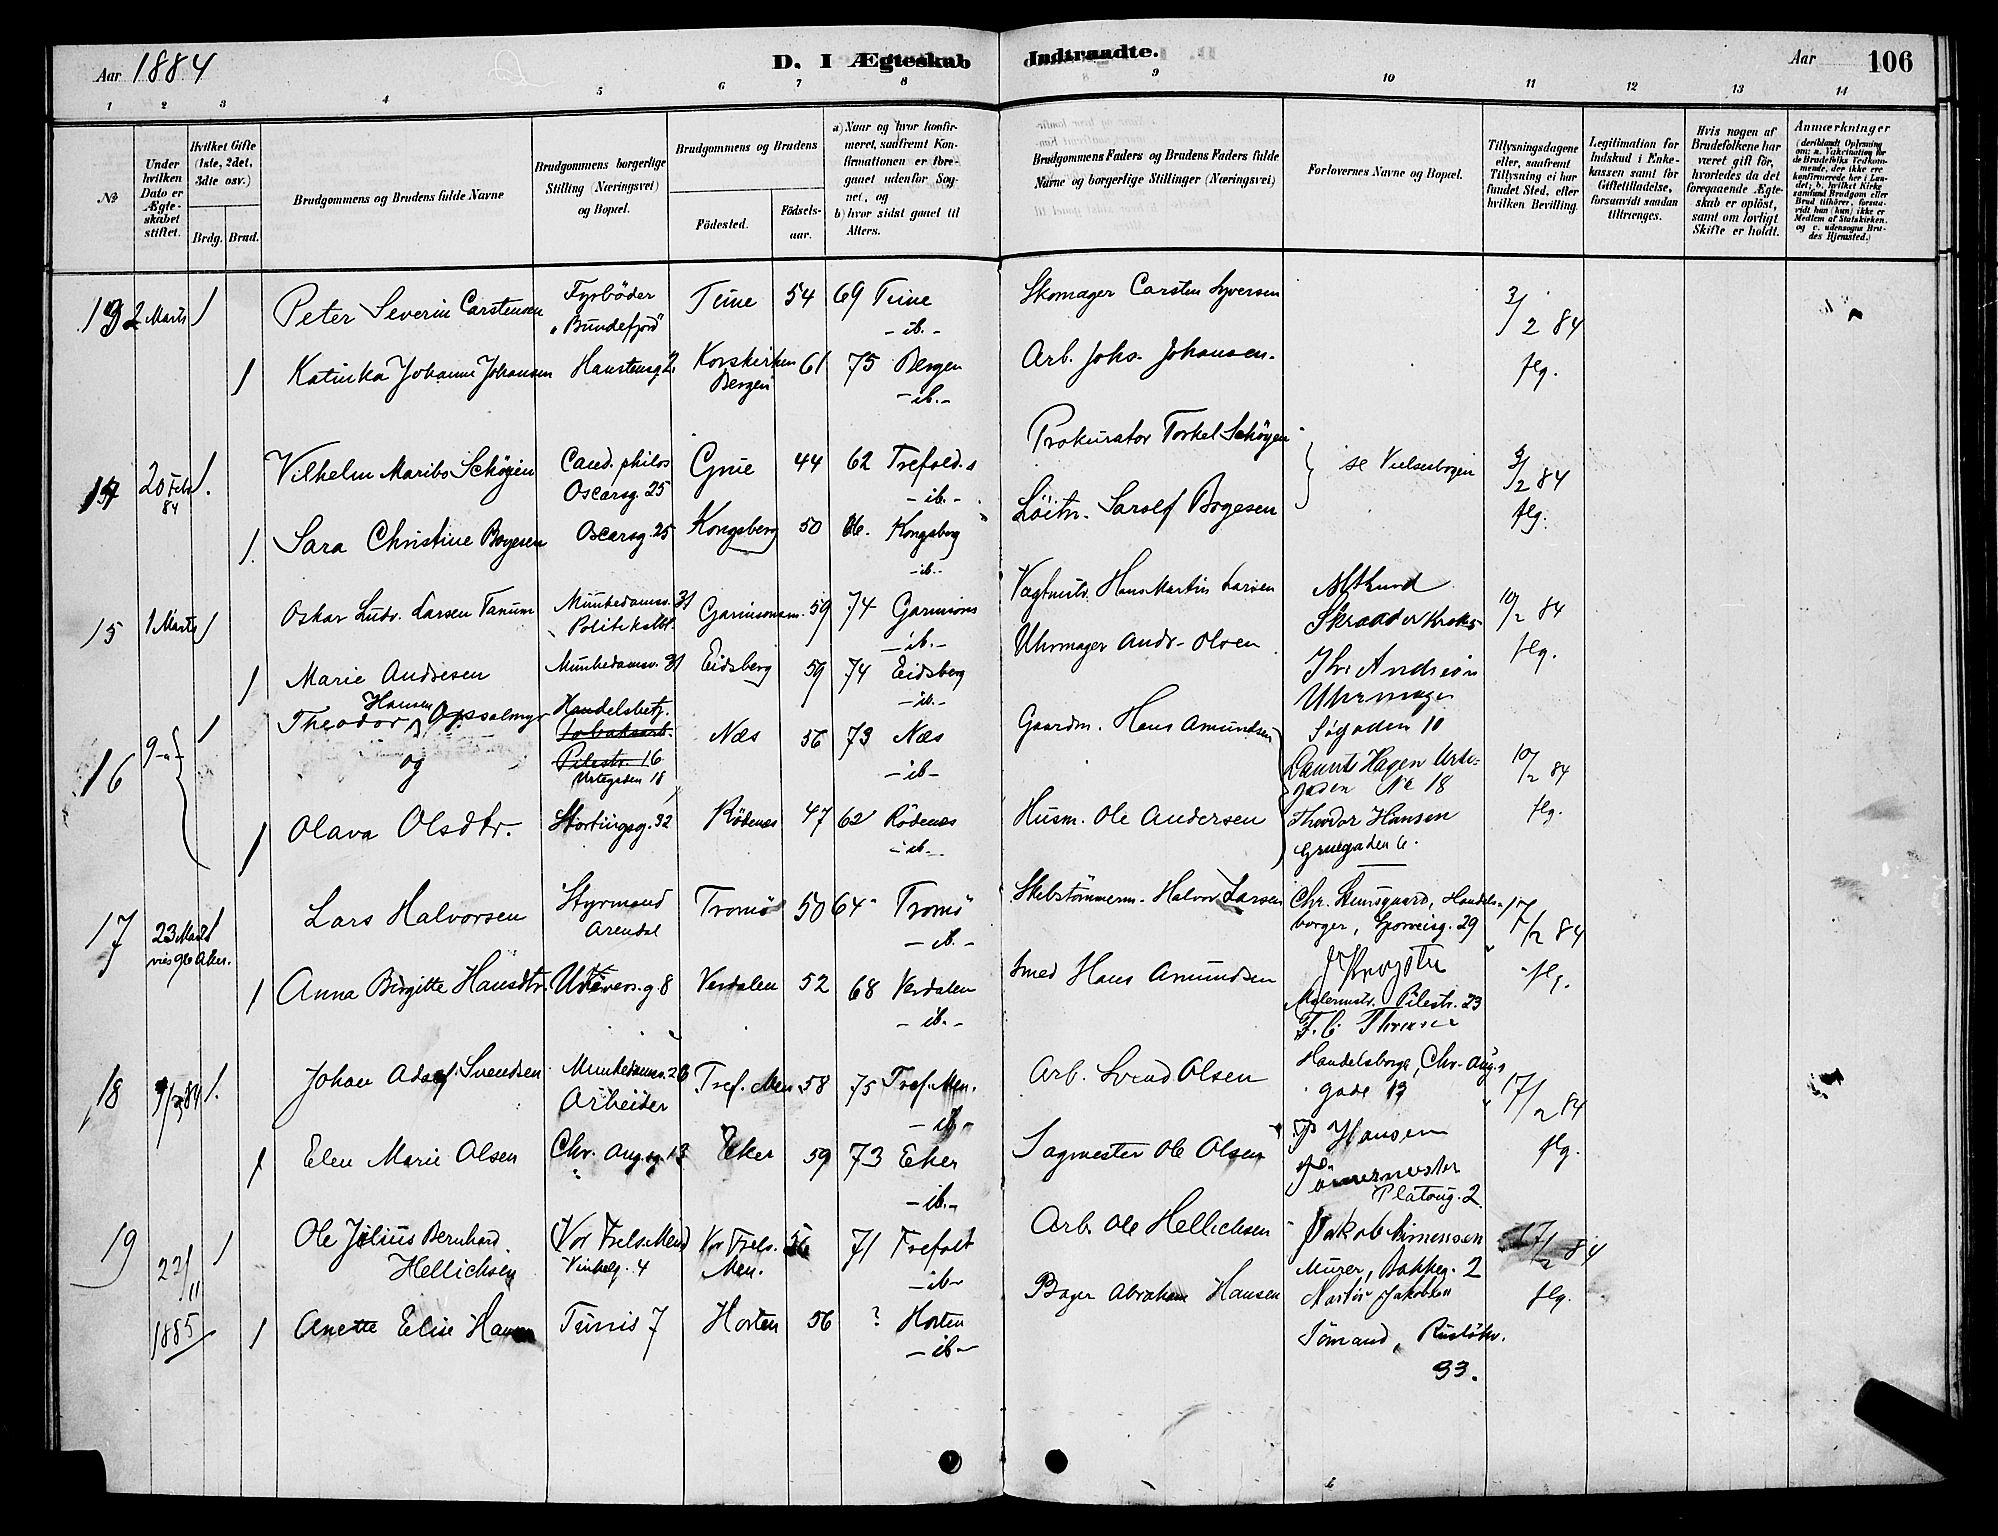 Aar 1884
D. I Ægteskab Indtraadte.
Aar 106
1 2 3 4 5 6 7 8 9 10 11 12 13 14
No
Under hvilken Dato er Ægteskabet stiftet.
Hvilket Gifte (1ste, 2det, 3die osv.)
Brdg. Brud.
Brudgommens og Brudens fulde Navne
Brudgommens borgerlige Stilling (Næringsvei) og Bopæl.
Brudgommens og Brudens
Födested.
Födselsaar.
a) Naar og hvor konfirmeret, saafremt Konfirmationen er foregaaet udenfor Sognet, og
b) hvor sidst gaaet til Alters.
Brudgommens Faders og Brudens Faders fulde Navne og borgerlige Stillinger (Næringsvei)
Forlovernes Navne og Bopæl.
Tillysningsdagene eller, saafremt Tillysning ei har fundet Sted, efter hvilken Bevilling.
Legitimation for Indskud i Enkekassen samt for Giftetilladelse, forsaavidt saadan tiltrænges.
Hvis nogen af Brudefolkene har været gift för, hvorledes da det foregaaende Ægteskab er oplöst, samt om lovligt Skifte er holdt.
Anmærkninger
(deriblandt Oplysning om: a. Vakcination for de Brudefolks Vedkommende, der ikke ere konfirmerede her i Landet; b. hvilket Kirkesamfund Brudgom eller Brud tilhörer, forsaavidt han (hun) ikke er Medlem af Statskirken. og c. udensogns Brudes Hjemsted.)
13 2 Marts 1 Peter Severin Carstensen Fyrböder Tune 54 69 Tune Skomager Carsten Syversen 3/2 84
"Bundefjord" - ib. -
1 Katinka Johanne Johansen Hausteng. 2 Korskirken 61 75 Bergen Arb. Johs. Johansen. flg.
Bergen - ib. -
Prokurator Torkel Schøyen
14 20 Feb 84 1. Vilhelm Maribo Schøyen Cand. philos Grue 44 62 Trefold.s se Vielsesbogen 9/2 84
Oscarsg. 25 - ib. -
1. Sara Christine Boyesen Oscarsg. 25 Kongsberg 50 66. Kongsberg Löitn. Sarolf Boyesen flg.
- ib. -
15 1 Marts 1 Oskar Ludv. Larsen Tanum Munkedamsv. 31 Garnisonsm. 59 74 Garnisons Vagtmstr. Hans Martin Larsen 10/2 84
Politikstbl. - ib. - Skrædder
1 Marie Andresen Munkedamsv. 31 Eidsberg 59 74 Eidsberg Uhrmager Andr. Olsen flg.
- ib. - Uhrmager
16 9 1 Theodor Hansen Opsalmyr Handelsbetj. Næs 56 73 Næs Gaardm. Hans Amundsen Søgaden 10 10/2 84
og Pilestr. 16 - ib - Laurits Hagen Urtegaden No 18
Urtegaden 18
1 Olava Olsdtr. Stortingsg. 32 Rödenes 47 62 Rödenes Husm. Ole Andersen Theodor Hansen flg.
- ib. - Gruegaden 6.
17 23 Marts 1 Lars Halvorsen Styrmand Tromö 50 64 Tromö Skibstömmerm. Halvor Larsen Chr. Stensgaard, Handelsborger, Sporveisg. 29 17/2 84
Arendal - ib. -
1 Anna Birgitte Hansdtr. Univers. g 8 Verdalen 52 68 Verdalen Smed Hans Amundsen flg.
- ib. - Malermstr. Pilestr. 23
18 9/3 84 1. Johan Adolf Svendsen Munkedamsv. 26 Tref. Men. 58 75 Tref. Men. Arb. Svend Olsen Handelsborg., Chr. Aug.s gade 13 17/2 84
Arbeider - ib -
1 Elen Marie Olsen Chr. Aug. g. 13 Eker 59 73 Eker Sagmester Ole Olsen P Hansen flg.
- ib. - Tömmermester
Platoug. 2
19 22/11 1885 1 Ole Julius Bernhard Hellichsen (Vor Frels. Men) Vor Frels. Men. 56 71 Trefolt Arb. Ole Hellichsen Jakob Simensen 17/2 84
Vinkelg. 4 - ib - Murer, Bakkeg. 2
1 Anette Elise Hansen Tunis 7 Horten 56 ? Horten Bager Abraham Hansen Martin Jakobsen flg.
- ib - Sömand,
33.